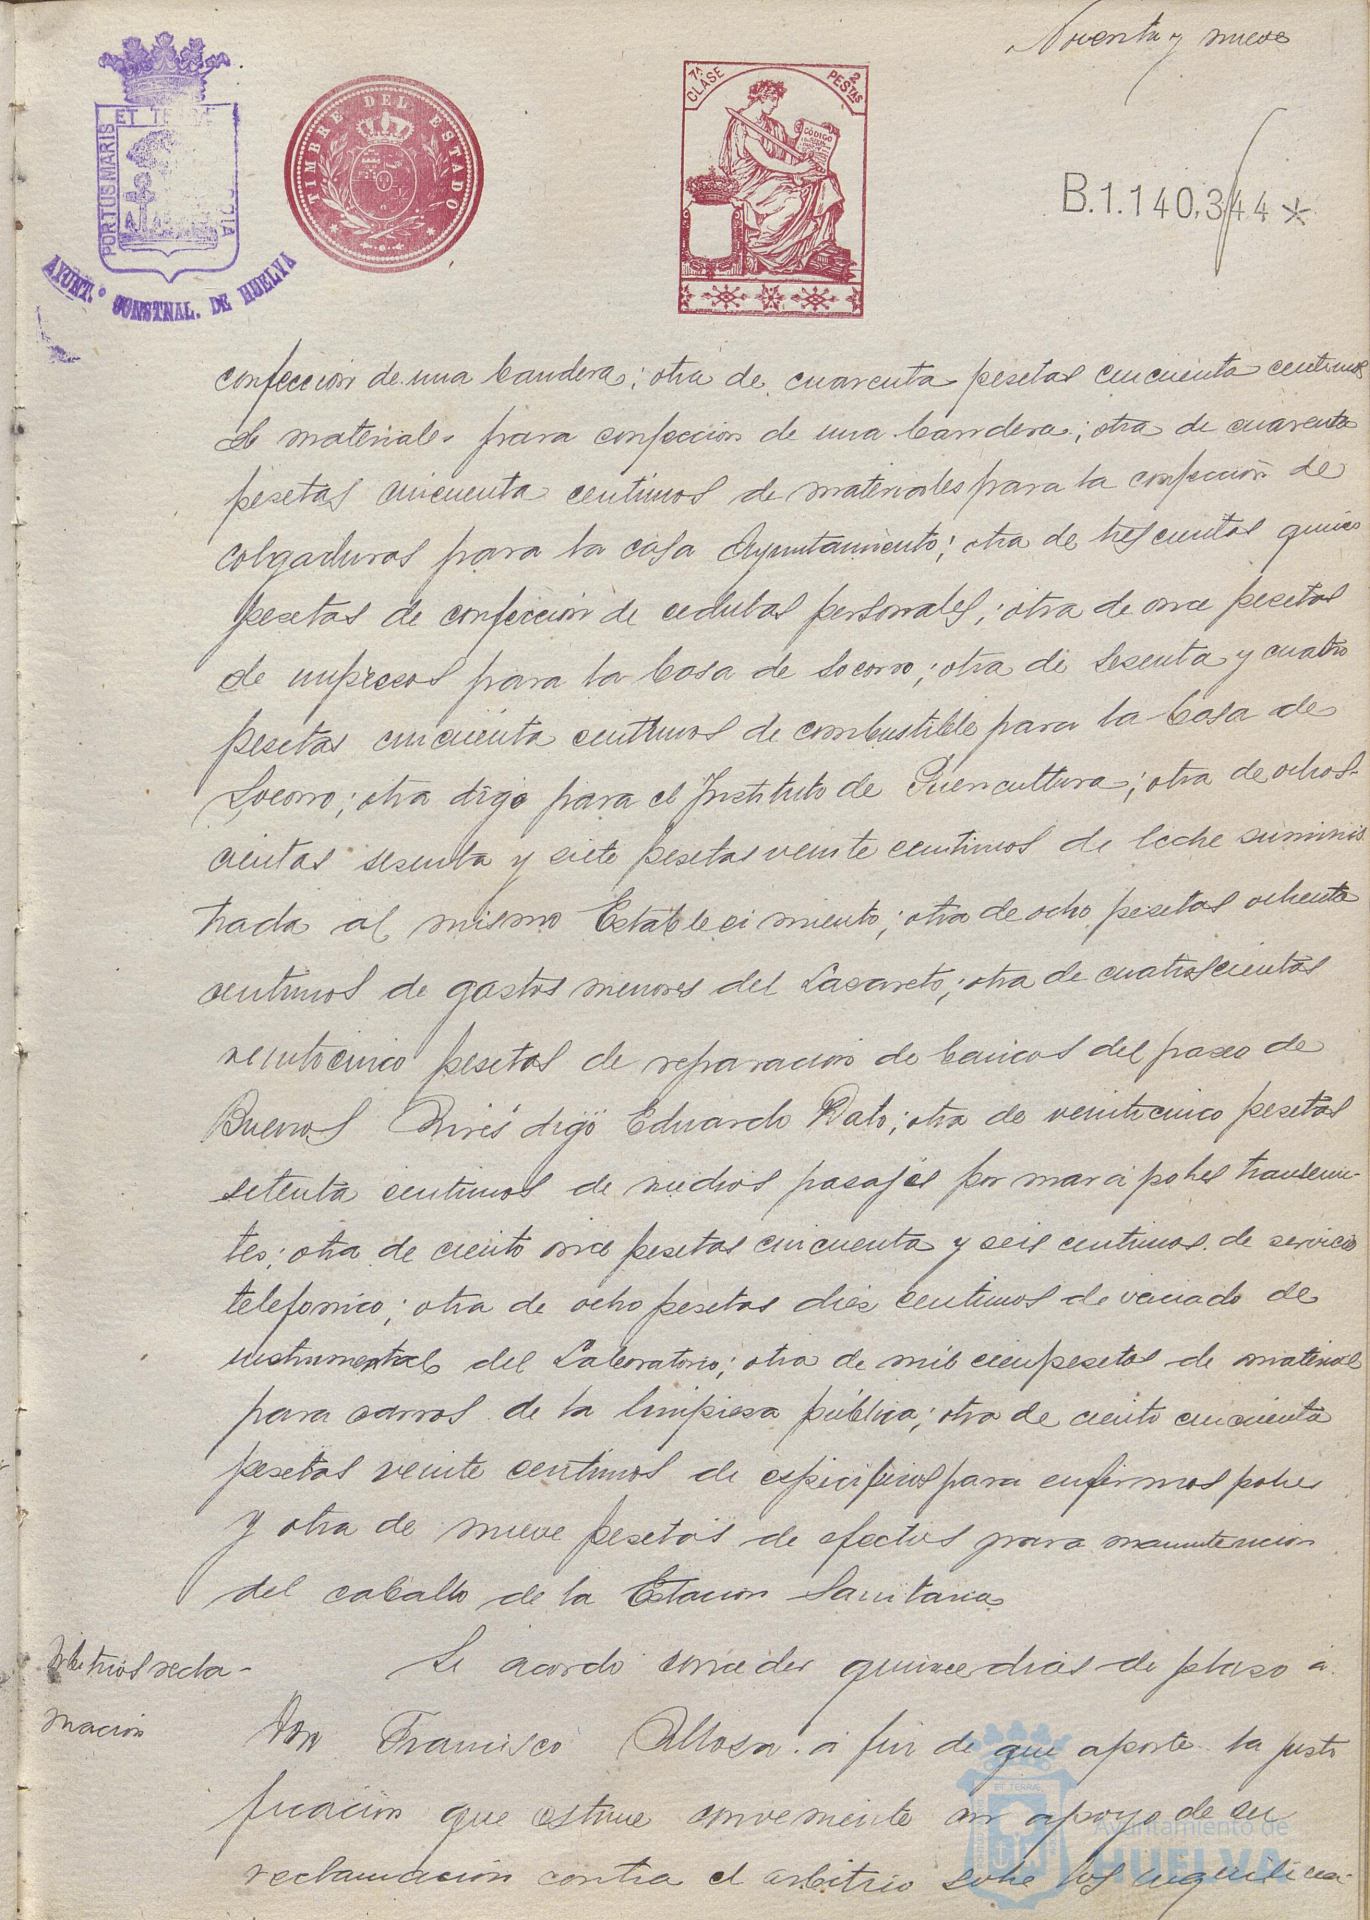 Noventa y nueve
ET TERRÆ
PORTUS MARIS
AYUNT.º CONSTNAL. DE HUELVA
TIMBRE DEL ESTADO
7ª CLASE
2 PESTAS
CÓDIGO
B.1.140,344 *
confeccion de una bandera; otra de cuarenta pesetas cincuenta centimos
de materiales para confeccion de una bandera; otra de cuarenta
pesetas cincuenta centimos de materiales para la confección de
colgaduras para la casa Ayuntamiento; otra de trescientos quince
pesetas de confección de cedulas personales; otra de once pesetas
de impresos para la Casa de Socorro; otra de sesenta y cuatro
pesetas cincuenta centimos de combustible para la Casa de
Socorro; otra digo para el Instituto de Puericultura; otra de ochos-
cientas sesenta y siete pesetas veinte centimos de leche suminis
trada al mismo Establecimiento; otra de ocho pesetas ochenta
centimos de gastos menores del Lazareto; otra de cuatroscientas
veinticinco pesetas de reparacion de bancos del paseo de
Buenos Aires digo Eduardo Dato; otra de veinticinco pesetas
setenta centimos de medios pasajes por mar á pobres transeun-
tes; otra de ciento once pesetas cincuenta y seis centimos de servicio
telefonico; otra de ocho pesetas diez centimos de vaciado de
instrumental del Laboratorio; otra de mil cien pesetas de material
para carros de la limpieza pública; otra de ciento cincuenta
pesetas veinte centimos de especificos para enfermos pobres
y otra de nueve pesetas de efectos para manutencion
del caballo de la Estacion Sanitaria
Arbitrios recla-
macion
Se acordo conceder quince dias de plazo a
Don Francisco a fin de que aporte la justi
ficación que estime conveniente en apoyo de su
reclamación contra el arbitrio sobre los
ET TERRÆ
Ayuntamiento de
HUELVA